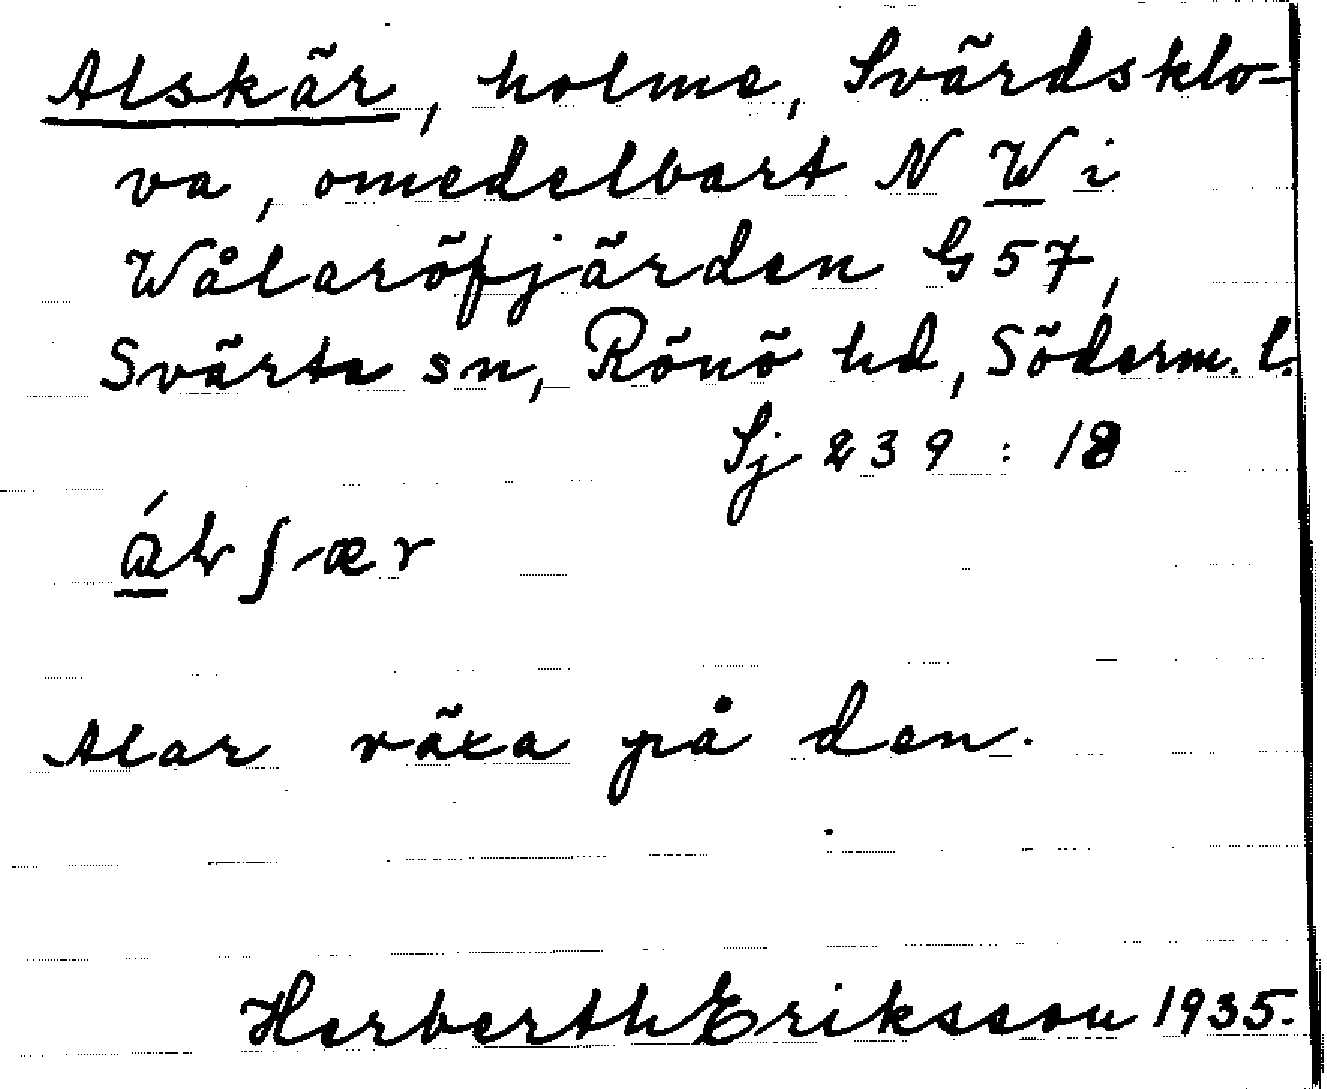 Alskär, holme, Svärdsklo=
va, omedelbart N W i
Wålaröfjärden G 57,
Svärta sn, Rönö hd, Söderm. l.
Sj 239 : 18
Alar växa på den.
Herberth Eriksson 1935.